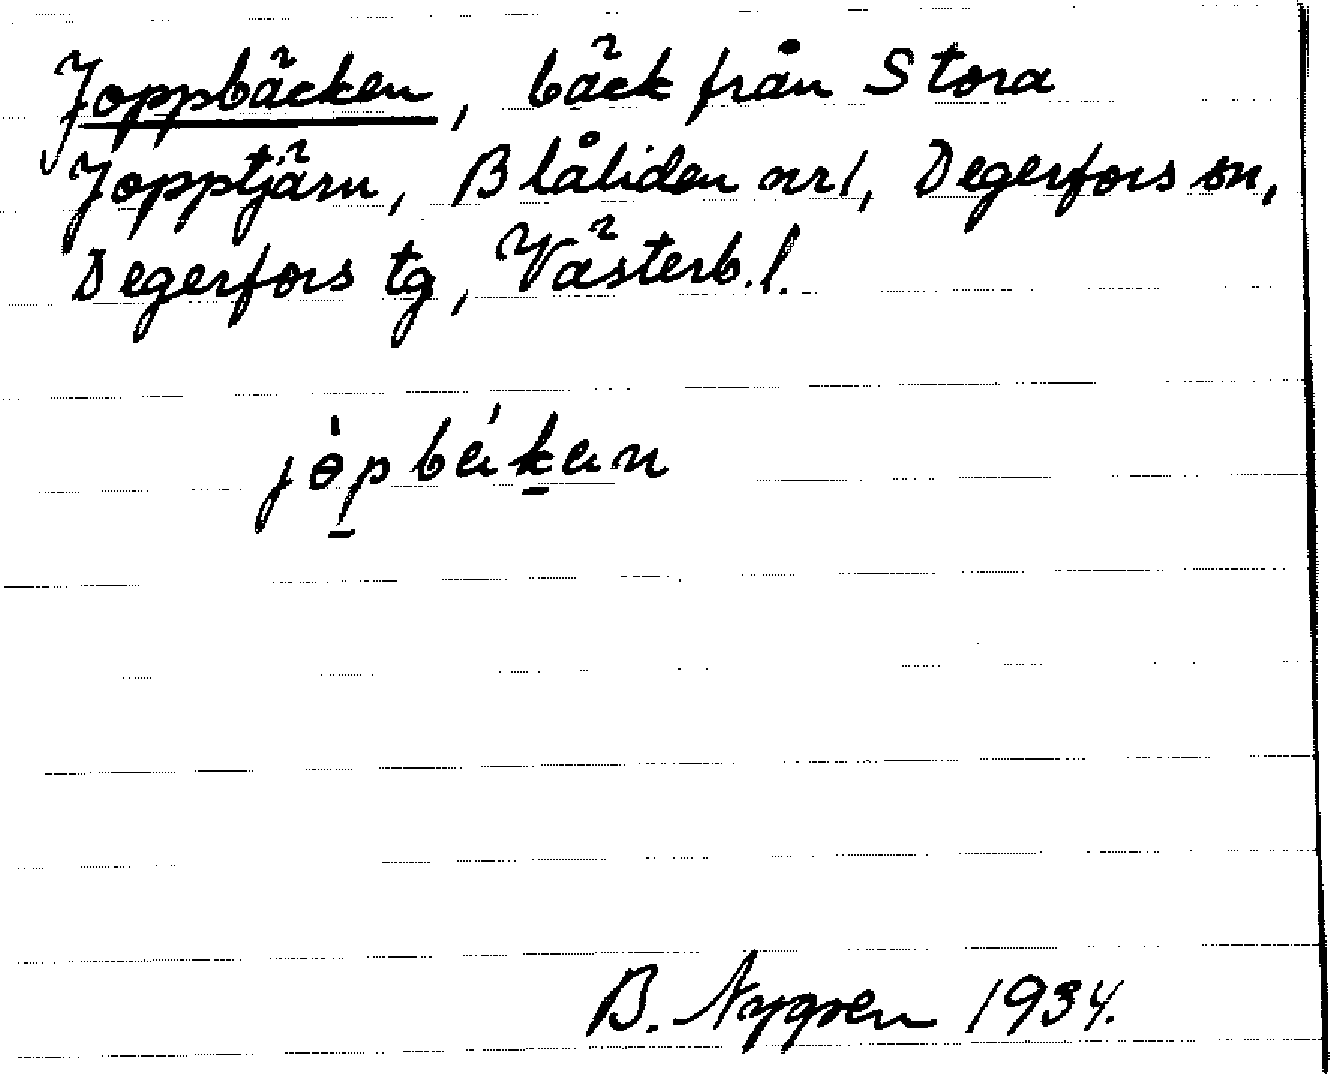 Joppbäcken, bäck från Stora
Jopptjärn, Blåliden nr 1, Degerfors sn,
Degerfors tg, Västerb. l.
B. Nygren 1934.